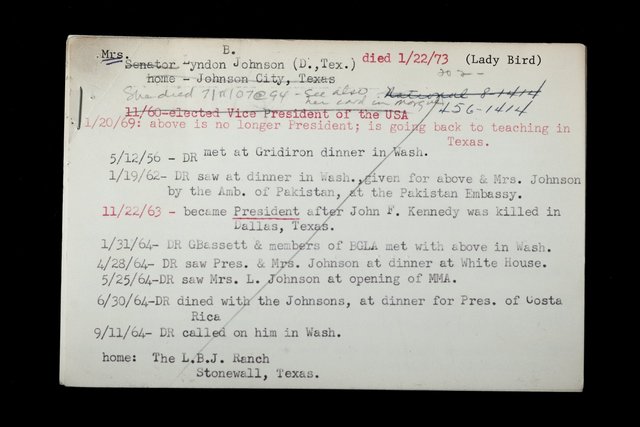 Mrs. B.
Senator Lyndon Johnson (D.,Tex.) died 1/22/73 (Lady Bird)
home - Johnson City, Texas 202-
She died 7/11/07 @ 94 - See also National 8-1414
her card in morgue 456-1414
11/60-elected Vice President of the USA
1/20/69: above is no longer President; is going back to teaching in
Texas.
5/12/56 - DR met at Gridiron dinner in Wash.
1/19/62- DR saw at dinner in Wash., given for above & Mrs. Johnson
by the Amb. of Pakistan, at the Pakistan Embassy.
11/22/63 - became President after John F. Kennedy was killed in
Dallas, Texas.
1/31/64- DR GBassett & members of BGLA met with above in Wash.
4/28/64- DR saw Pres. & Mrs. Johnson at dinner at White House.
5/25/64-DR saw Mrs. L. Johnson at opening of MMA.
6/30/64-DR dined with the Johnsons, at dinner for Pres. of Costa
Rica
9/11/64- DR called on him in Wash.
home: The L.B.J. Ranch
Stonewall, Texas.